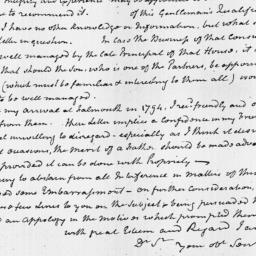 to recommend it. of this Gentleman's Qualific
I have no other knowledge or Information, but what
letter in question. In case the Business of that Cons
well managed by the late Principal of that House, it
that should the Son, who is one of the Partners, be appoin
(which must be familiar & interesting to them all) wo
to be well managed.
my arrival at Falmouth in 1754. I rec'd friendly and
from them. Their Letter implies a Confidence in my Frie
unwilling to disregard - especially as I think it des
occasions, the merit of a Father should be made advan
provided it can be done with Propriety—
to abstain from all Interference in matters of this
some Embarrassment - on further consideration,
a few Lines to you on the Subject & being persuaded
an Appology in the Motive which prompted them
with great Esteem and Regard I am
Dr Sr
Your obt Serv